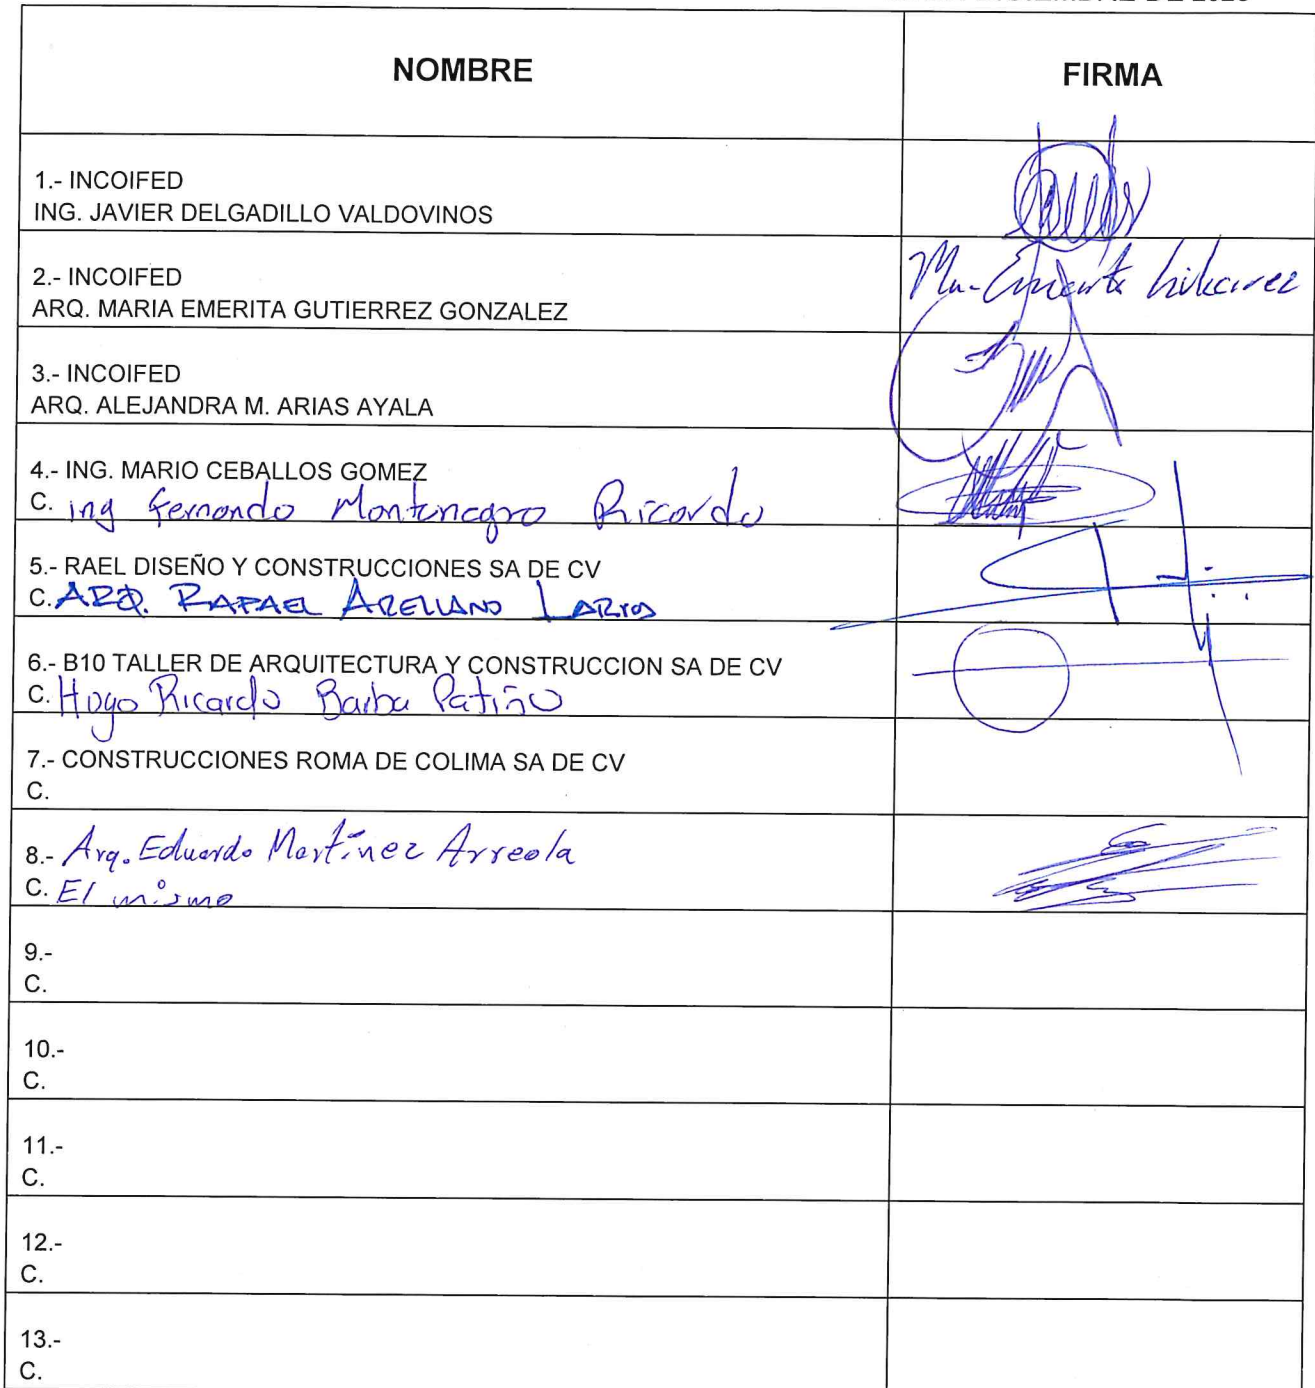 NOMBRE
FIRMA
1.- INCOIFED
ING. JAVIER DELGADILLO VALDOVINOS
2.- INCOIFED
ARQ. MARIA EMERITA GUTIERREZ GONZALEZ
Ma. Emerita
3.- INCOIFED
ARQ. ALEJANDRA M. ARIAS AYALA
4.- ING. MARIO CEBALLOS GOMEZ
C. ing Fernando Montenegro Ricardo
5.- RAEL DISEÑO Y CONSTRUCCIONES SA DE CV
C. ARQ. RAFAEL ARELLANO LARIOS
6.- B10 TALLER DE ARQUITECTURA Y CONSTRUCCION SA DE CV
C. Hugo Ricardo Barba Patiño
7.- CONSTRUCCIONES ROMA DE COLIMA SA DE CV
C.
8.- Arq. Eduardo Martínez Arreola
C. El mismo
9.-
C.
10.-
C.
11.-
C.
12.-
C.
13.-
C.